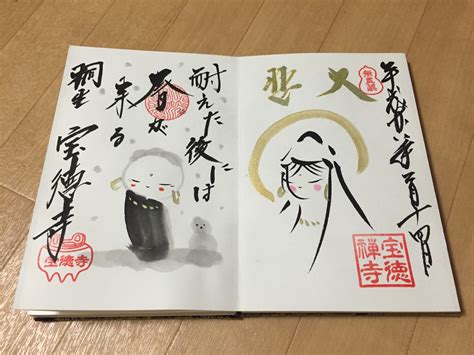 大悲
月十四日
宝徳
禅寺
耐えた後には
春が
来る
桐生
宝徳寺
宝徳寺